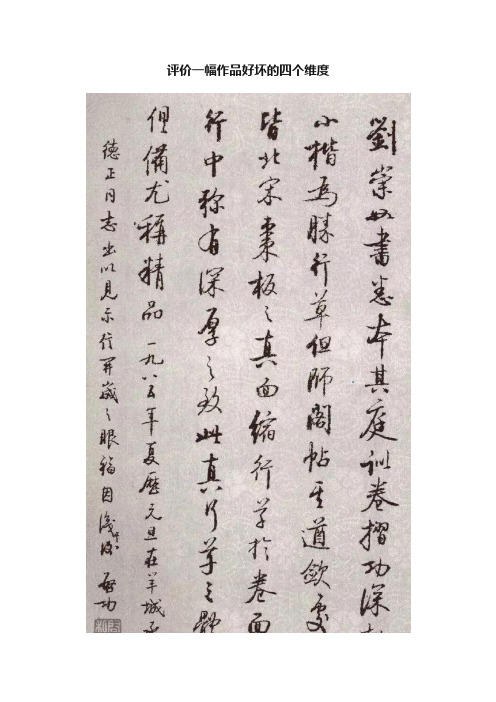 评价一幅作品好坏的四个维度
劉崇如書悉本其庭訓卷摺功深
小楷為勝行草但師閣帖其遒斂處
皆北宋棗板之真面縮行草於卷面
行中弥有深厚之致此真行草之體
俱備尤稱精品 一九八五年夏歷元旦在羊城
德正同志出以見示信開歲之眼福因 啟功